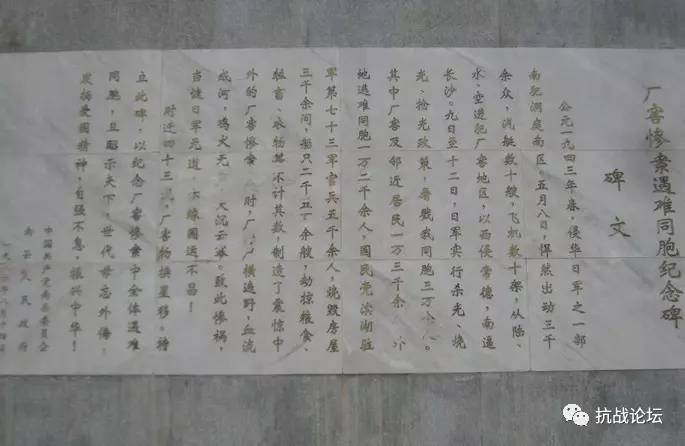 厂窖惨案遇难同胞纪念碑
碑文
公元一九四三年春。侵华日军之一部
南犯洞庭南区。五月八日,悍然出动三千
余众,汽艇数十艘,飞机数十架,从陆、
水、空进犯厂窖地区,以西侵常德,南逼
长沙。九日至十二日,日军实行杀光、烧
光、抢光政策,屠戮我同胞三万余人。
其中厂窖及邻近居民一万三千余人,外
地逃难同胞一万二千余人,国民党滨湖驻
军第七十三军官兵五千余人,烧毁房屋
三千余间,船只二千五百余艘,劫掠粮食、
牲畜、衣物等不计其数,制造了震惊中
外的厂窖惨案 时,厂 横遍野,血流
成河,鸡犬无 天沉云 。致此惨祸,
当缘日军无道, 缘国运不昌!
时近四十三 ,厂窖物换星移。特
立此碑,以纪念厂窖惨案中全体遇难
同胞,且昭示天下,世代毋忘外侮,
发扬爱国精神,自强不息,振兴中华!
中国共产党南县委员会
南县人民政府
抗战论坛